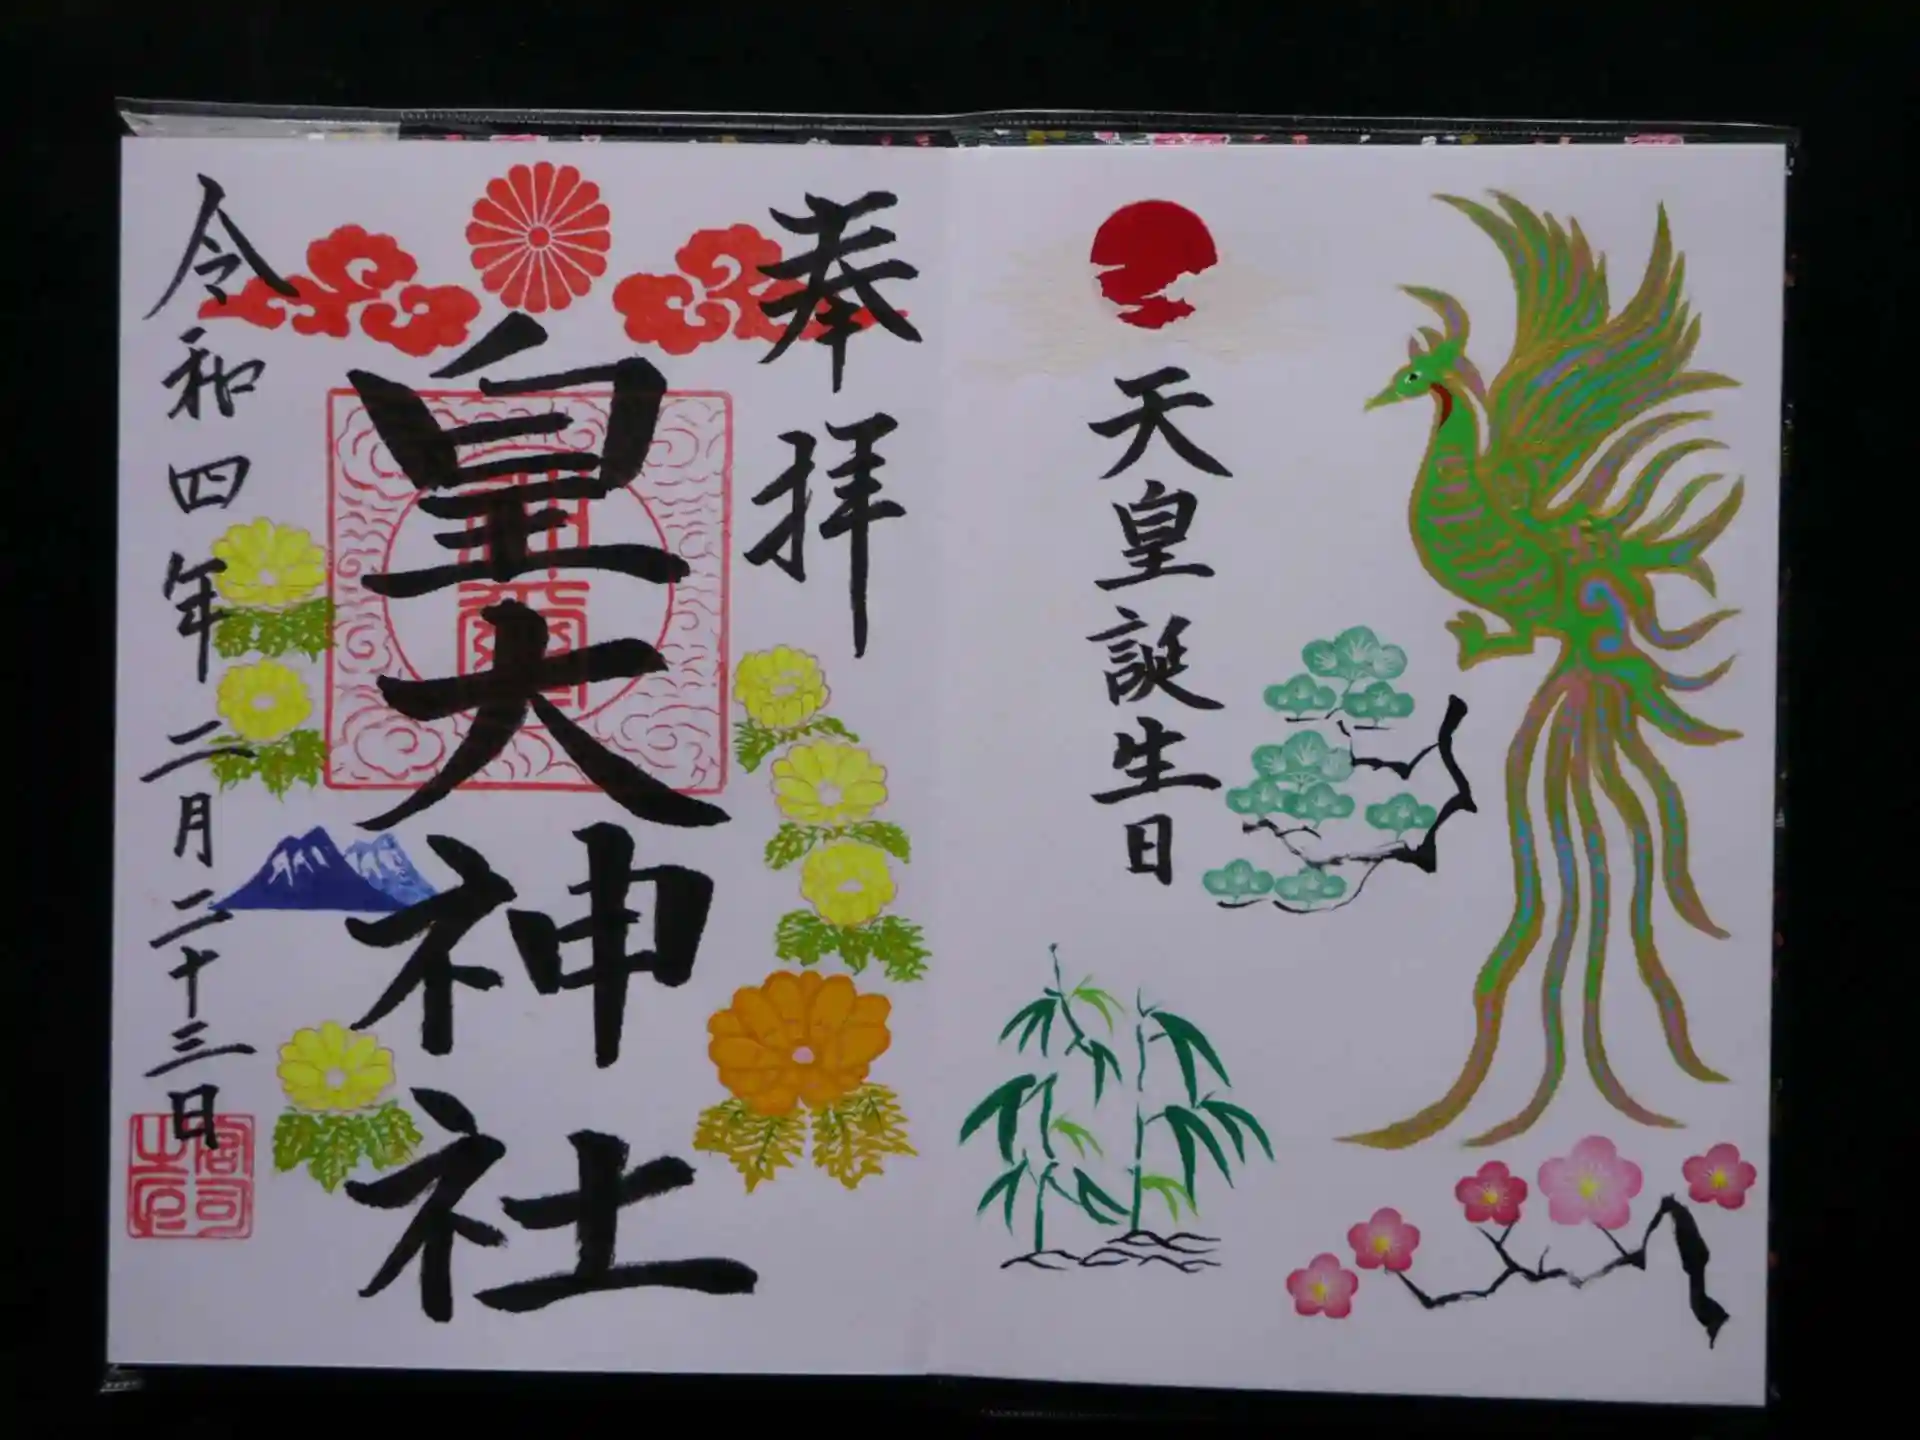 天皇誕生日
奉拝
皇大神社
令和四年二月二十三日
宮司之印